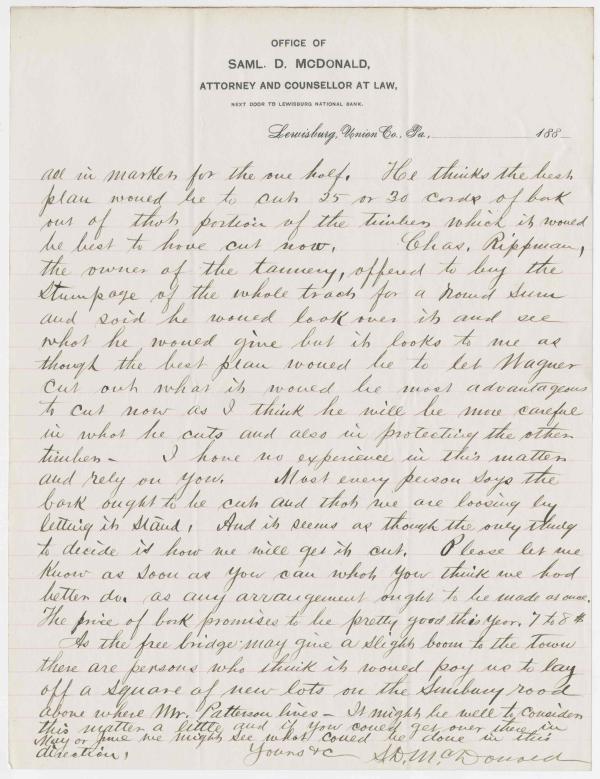 OFFICE OF
SAML. D. MCDONALD,
ATTORNEY AND COUNSELLOR AT LAW,
NEXT DOOR TO LEWISBURG NATIONAL BANK.
Lewisburg, Union Co., Pa., 188
all in market for the one half. He thinks the best
plan would be to cut 25 or 30 cords of bark
out of that portion of the timber which it would
be best to have cut now. Chas. Rippman,
the owner of the tannery, offered to buy the
Stumpage of the whole tract for a round sum
and said he would look over it and see
what he would give but it looks to me as
though the best plan would be to let Wagner
cut out what it would be most advantageous
to cut now as I think he will be more careful
in what he cuts and also in protecting the other
timber - I have no experience in this matter
and rely on you. Most every person says the
bark ought to be cut and that we are loosing by
letting it stand. And it seems as though the only thing
to decide is how we will get it cut. Please let me
know as soon as you can what you think we had
better do. as any arrangement ought to be made at once.
The price of bark promises to be pretty good this year. 7 to 8 $
As the free bridge may give a slight boom to the town
there are persons who think it would pay us to lay
off a square of new lots on the Sunbury road
above where Mr. Patterson lives - It might be well to consider
this matter a little and if you could get over there in
May or June we might see what could be done in this
direction, Yours &c S.D. McDonald